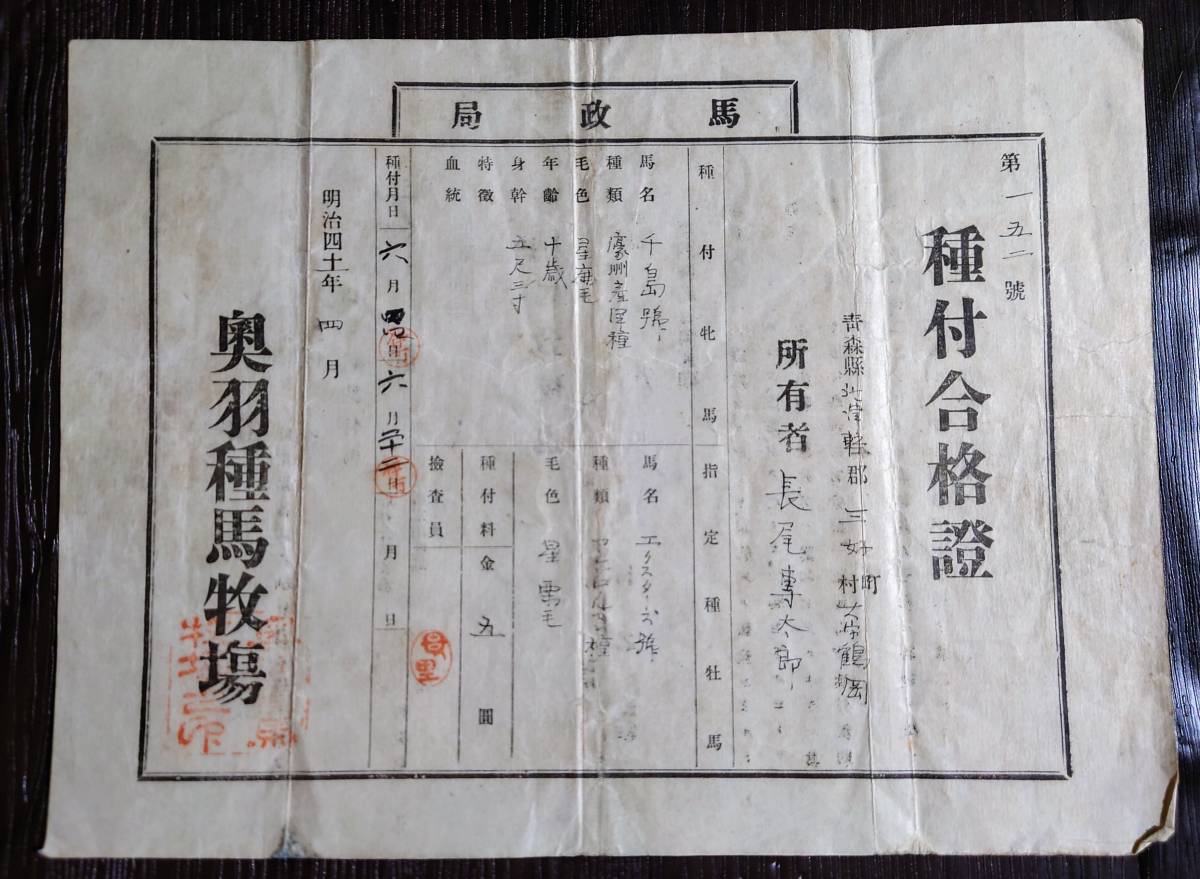 馬政局
第一五二號
種付合格證
青森縣北津軽郡三好町村大字鶴岡
所有者 長尾專太郎
種付牝馬
馬名 千島號
種類 濠洲産洋種
毛色 星鹿毛
年齡 十歳
身幹 五尺三寸
特徴
血統
指定種牡馬
馬名
種類
毛色 星栗毛
種付料金 五圓
撿査員
種付月日 六月四日 六月二十二 月 日
明治四十一年四月
奥羽種馬牧場